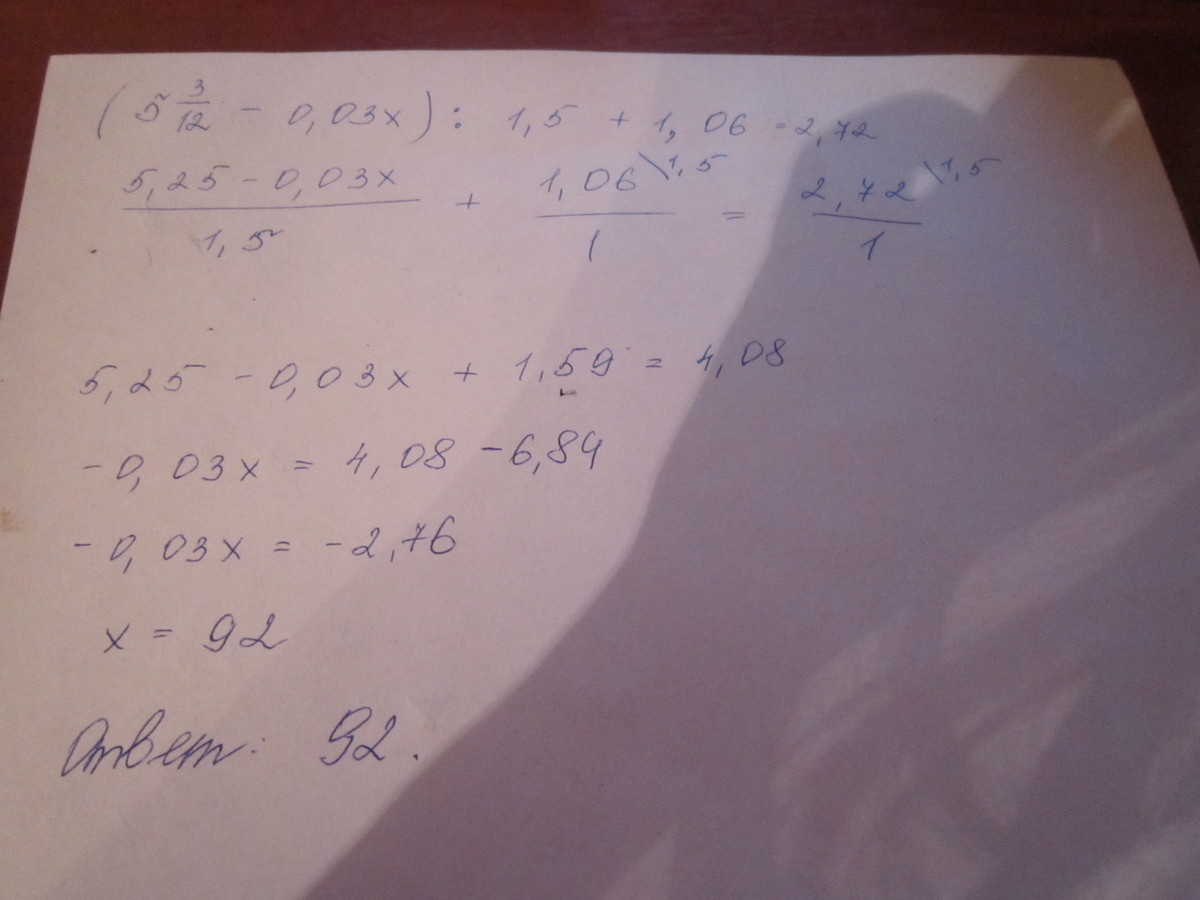 (5 3/12 - 0,03x) : 1,5 + 1,06 = 2,72
(5,25 - 0,03x)/1,5 + 1,06\1,5/1 = 2,72\1,5/1
5,25 - 0,03x + 1,59 = 4,08
-0,03x = 4,08 - 6,84
-0,03x = -2,76
x = 92
Ответ: 92.